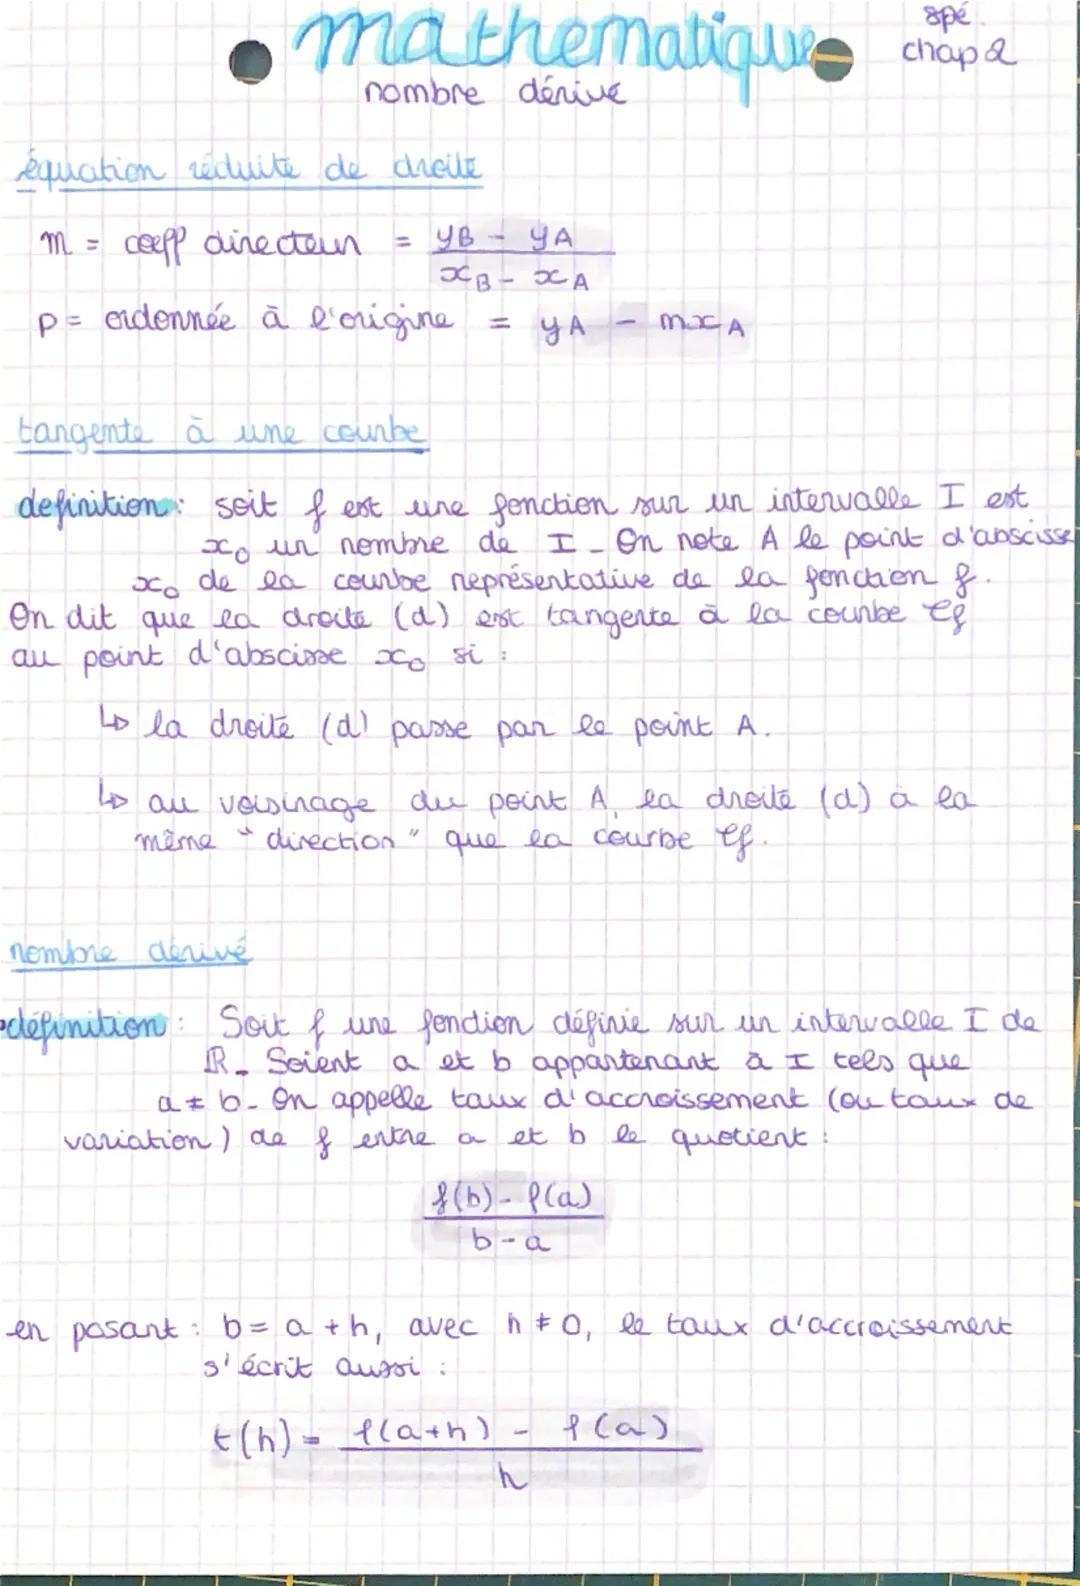 mathematique
spé.
chap 2
nombre dérivé
équation réduite de droite
m = coeff directeur = yB - yA / xB - xA
p = ordonnée à l'origine = yA - mxA
tangente à une courbe
definition : soit f est une fonction sur un intervalle I est
x₀ un nombre de I - On note A le point d'abscisse
x₀ de la courbe représentative de la fonction f.
On dit que la droite (d) est tangente à la courbe Cf
au point d'abscisse x₀ si :
↳ la droite (d) passe par le point A.
↳ au voisinage du point A, la droite (d) à la
même "direction" que la courbe Cf.
nombre dérivé
définition : Soit f une fonction définie sur un intervalle I de
ℝ - Soient a et b appartenant à I tels que
a ≠ b - On appelle taux d'accroissement (ou taux de
variation) de f entre a et b le quotient :
f(b) - f(a)
b - a
en posant : b = a + h, avec h ≠ 0, le taux d'accroissement
s'écrit aussi :
t(h) = f(a+h) - f(a)
h